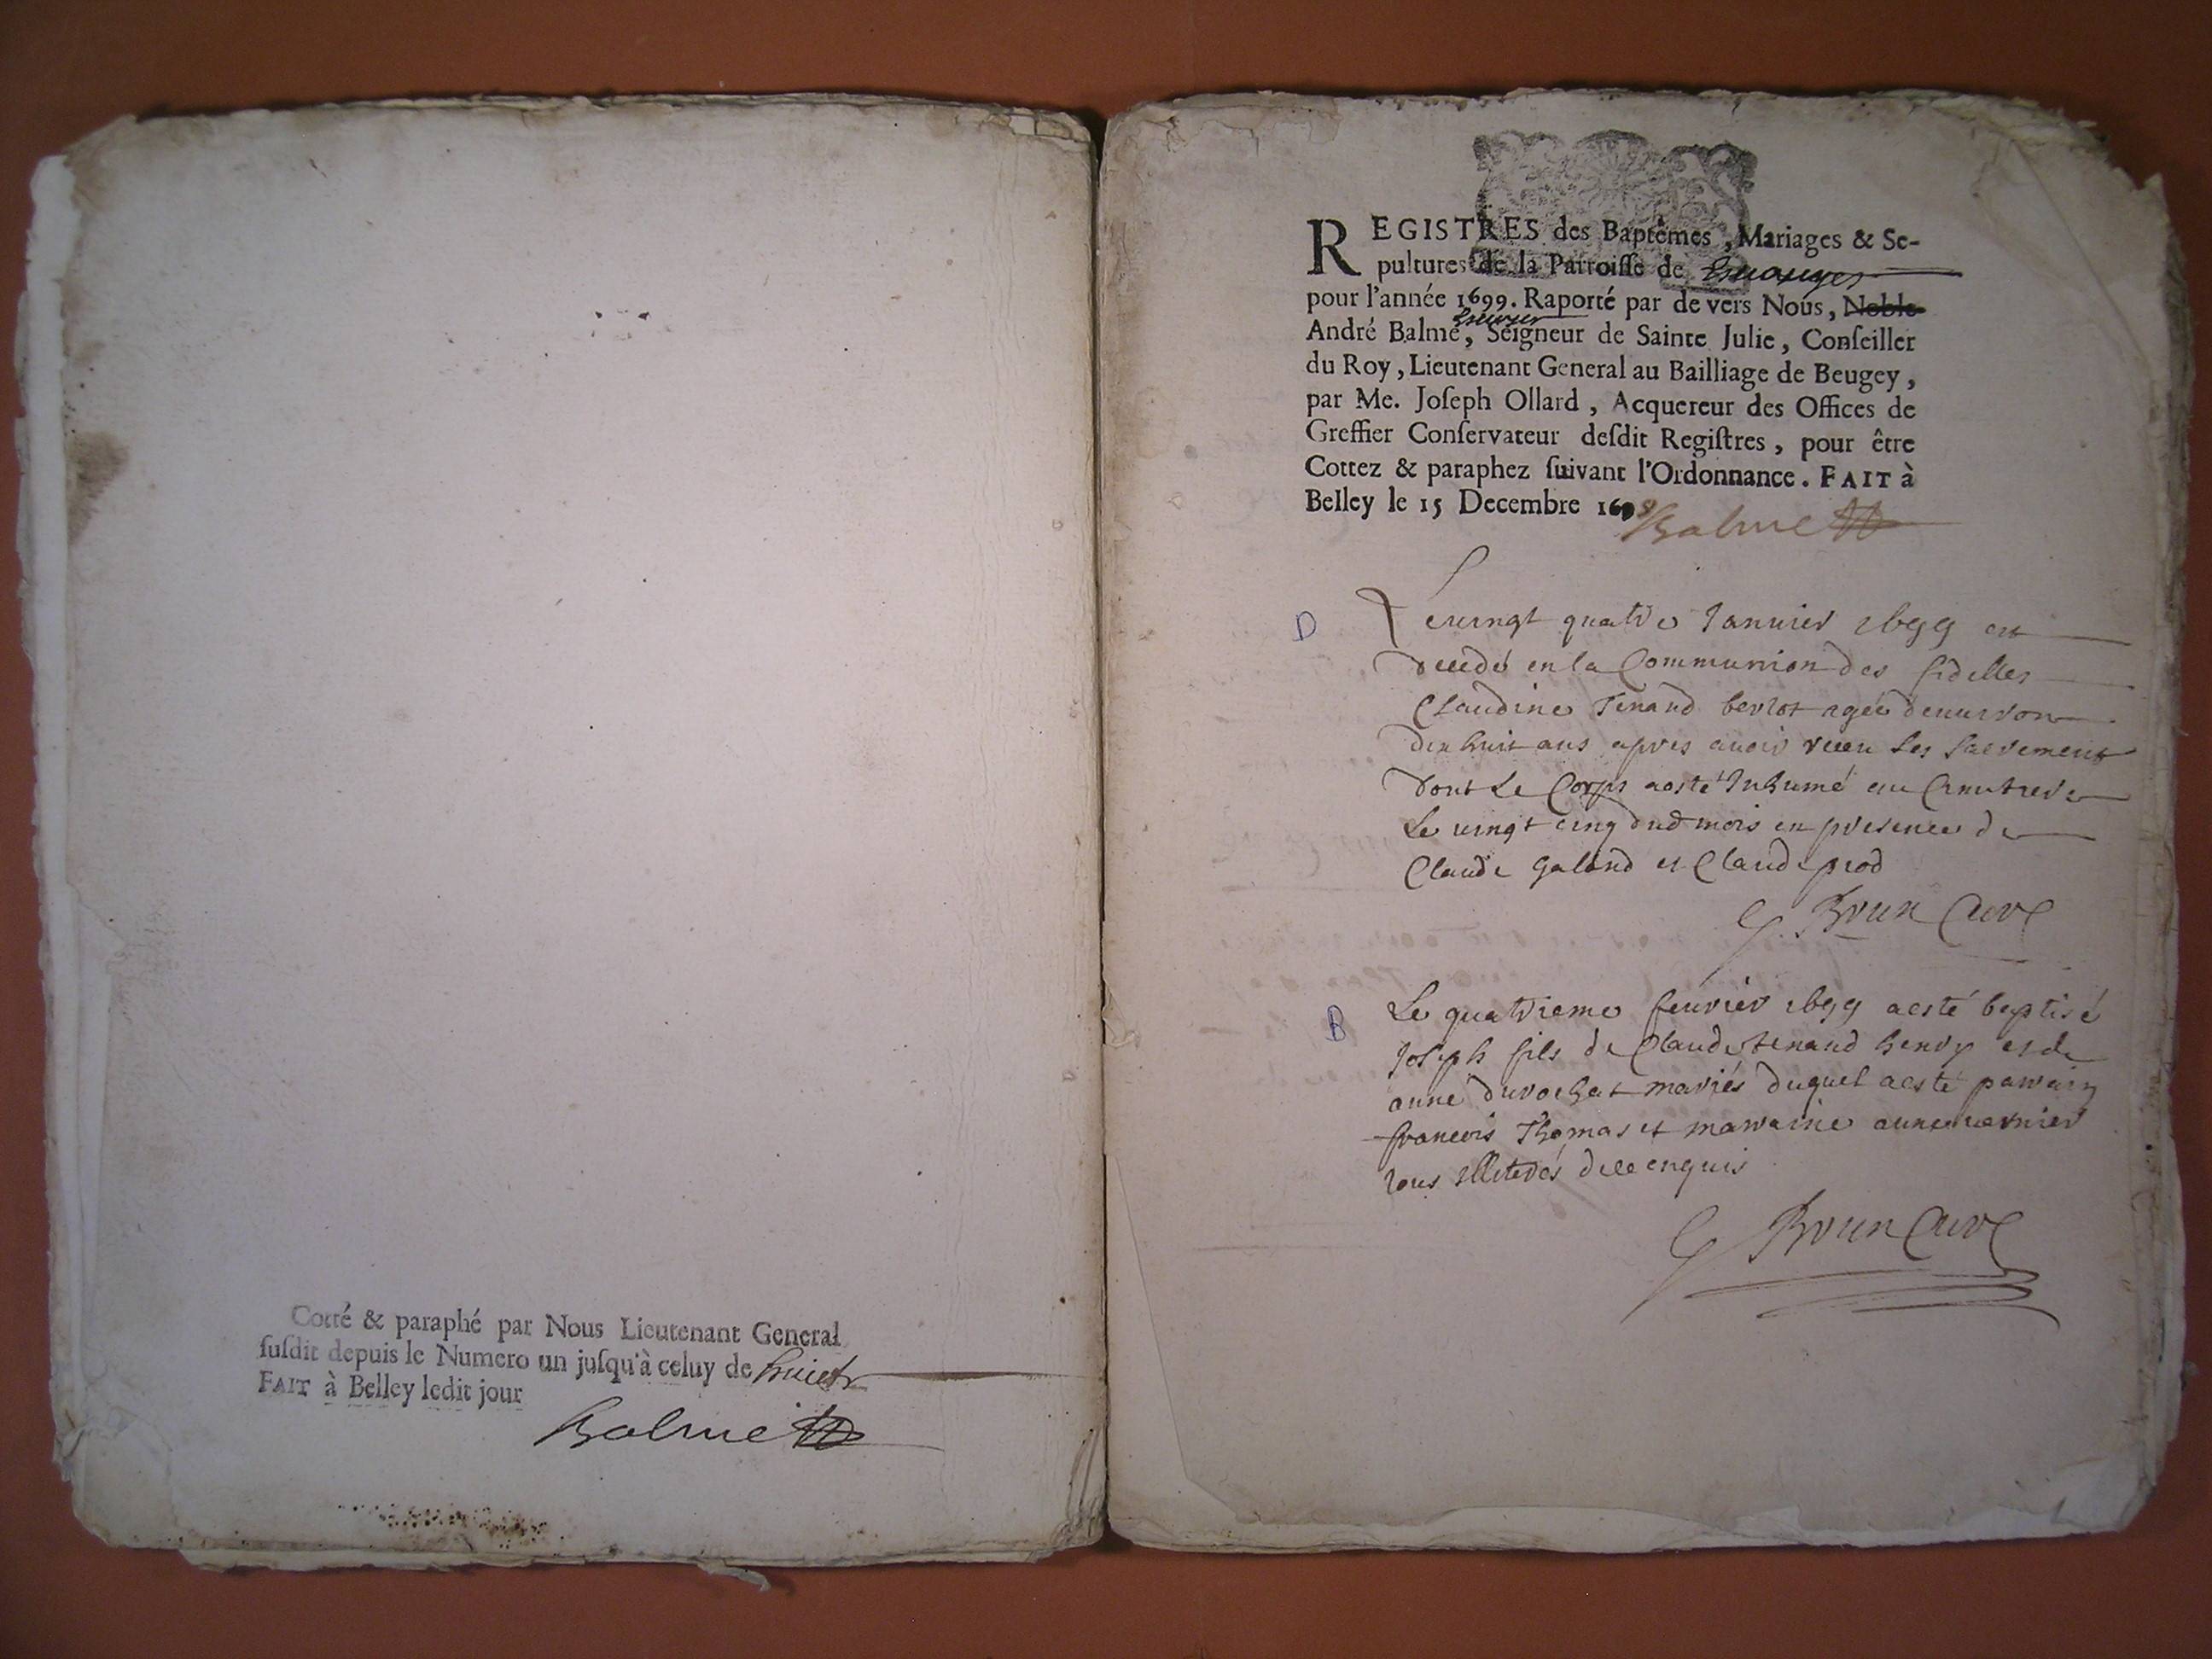 Cotté & paraphé par Nous Lieutenant General
ſuſdit depuis le Numero un juſqu'à celuy de huict
FAIT à Belley ledit jour
Balme
REGISTRES des Baptêmes, Mariages & Se-
pultures de la Parroiſſe de
pour l'année 1699. Raporté par de vers Nous, Noble
Escuier
André Balme, Seigneur de Sainte Julie, Conſeiller
du Roy, Lieutenant General au Bailliage de Beugey,
par Me. Joſeph Ollard, Acquereur des Offices de
Greffier Conſervateur deſdit Regiſtres, pour être
Cottez & paraphez ſuivant l'Ordonnance. FAIT à
Belley le 15 Decembre 1698
Balme
D
Le uingt quatre Januier 1699 est
decedé en la Communion des fidelles
Claudine Tenand berlot agée denuiron
dix huit ans apres auoir receu les sacrements
dont Le Corps a esté Inhumé au Cimitiere
Le uingt cinq dud mois en presence de
Claude Galand et Claude prod
G. Brun Curé
B
Le quatrieme feurier 1699 a esté baptisé
Joseph fils de Claude tenand henry et de
anne durochat mariés duquel a esté parrain
francois Thomas et marraine anne uernier
tous Illiterés de ce enquis
G Brun Curé